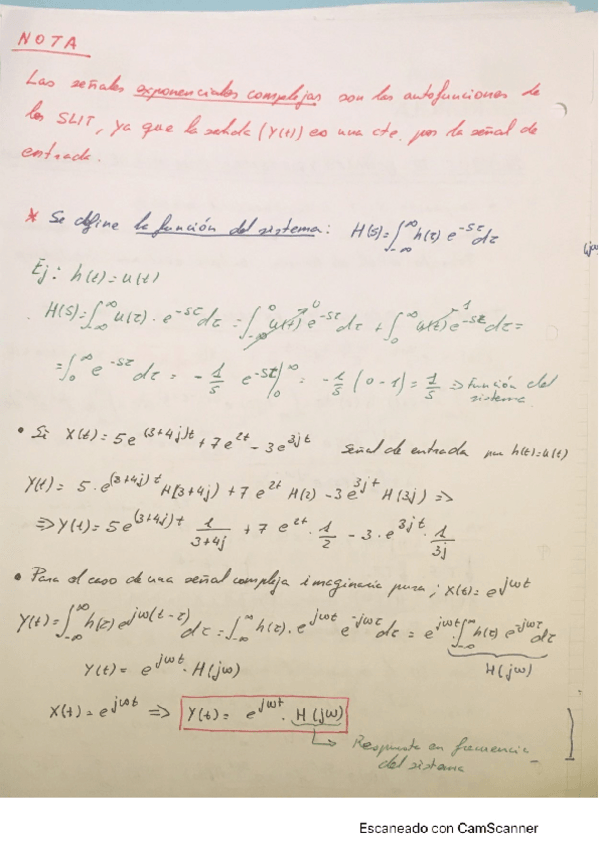 NOTA
Las señales exponenciales complejas son las autofunciones de
los SLIT, ya que la salida (Y(t)) es una cte. por la señal de
entrada.
* Se define la función del sistema: H(s)=∫_{-∞}^{∞} h(τ) e^{-sτ} dτ
(jω
Ej: h(t)=u(t)
H(s)=∫_{-∞}^{∞} u(τ)·e^{-sτ} dτ = ∫_{-∞}^{0} u(τ) 0 e^{-sτ} dτ + ∫_{0}^{∞} u(τ) 1 e^{-sτ} dτ =
=∫_{0}^{∞} e^{-sτ} dτ = -1/s e^{-sτ}|_{0}^{∞} = -1/s (0-1) = 1/s => Función del
sistema.
• Si X(t)= 5e^{(3+4j)t} + 7e^{2t} - 3e^{3jt} Señal de entrada para h(t)=u(t)
Y(t)= 5·e^{(3+4j)t} H(3+4j) + 7e^{2t} H(2) - 3e^{3jt} H(3j) =>
=> Y(t)= 5e^{(3+4j)t} 1/(3+4j) + 7e^{2t}·1/2 - 3·e^{3jt}·1/3j
• Para el caso de una señal compleja imaginaria pura; X(t)= e^{jωt}
Y(t)=∫_{-∞}^{∞} h(τ) e^{jω(t-τ)} dτ = ∫_{-∞}^{∞} h(τ)·e^{jωt} e^{-jωτ} dτ = e^{jωt}·∫_{-∞}^{∞} h(τ) e^{-jωτ} dτ
H(jω)
Y(t)= e^{jωt}·H(jω)
X(t)= e^{jωt} => Y(t)= e^{jωt}·H(jω)
Respuesta en frecuencia
del sistema
Escaneado con CamScanner